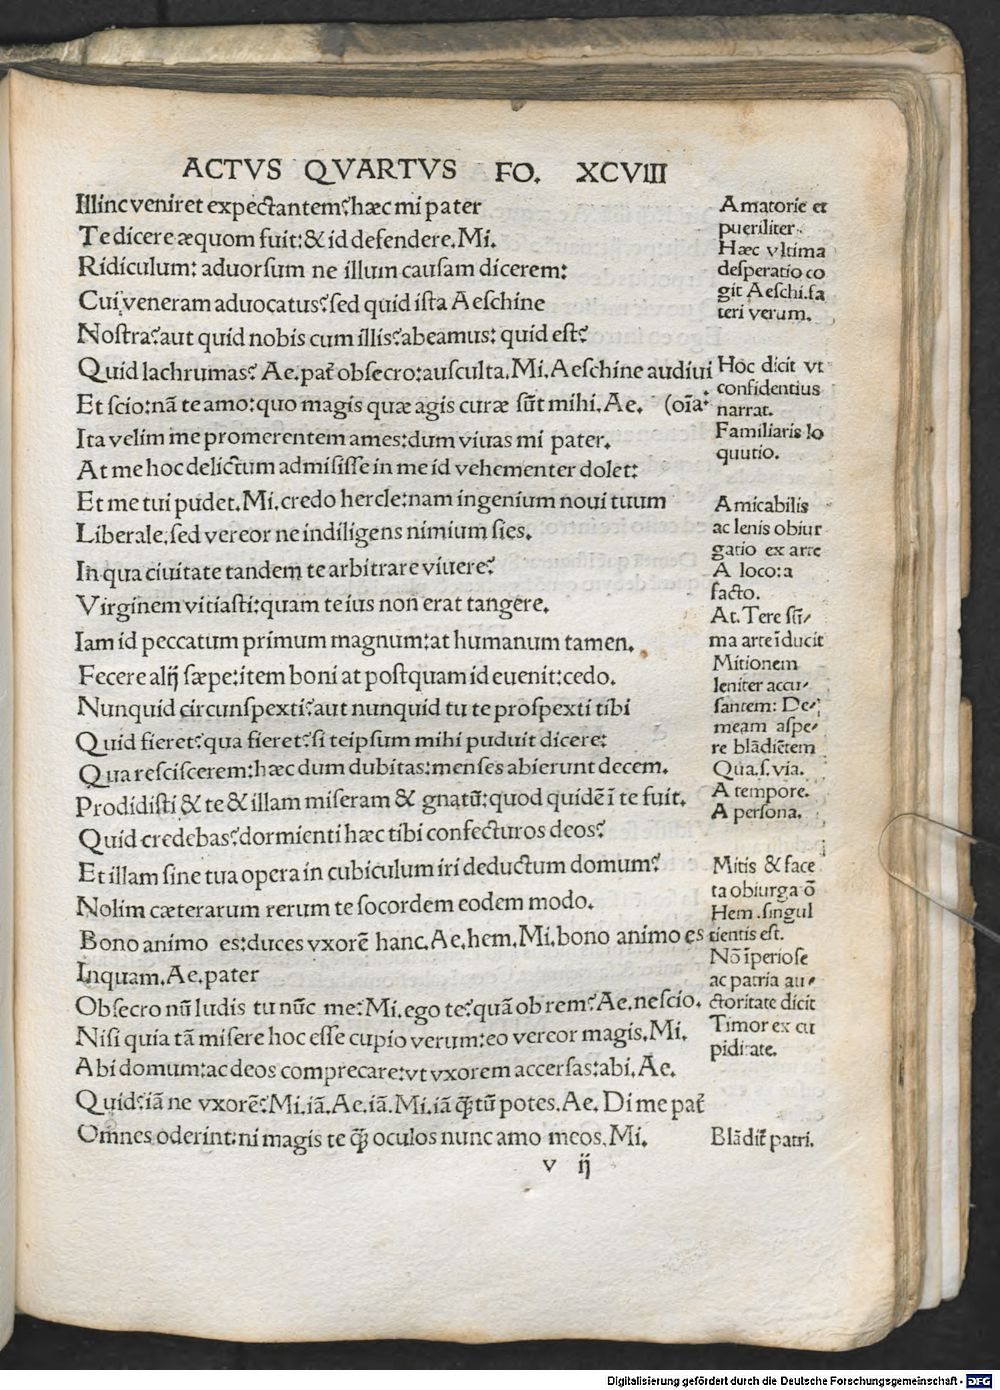 ACTVS QVARTVS FO. XCVIII
Illinc veniret expectantem? hæc mi pater
Te dicere æquom fuit: & id defendere. Mi.
Ridiculum: aduorſum ne illum cauſam dicerem:
Cui veneram aduocatus? ſed quid iſta Aeſchine
Noſtra? aut quid nobis cum illis? abeamus: quid eſt?
Quid lachrumas? Ae. pat̃ obſecro: auſculta. Mi. Aeſchine audiui
Et ſcio: nã te amo: quo magis quæ agis curæ ſũt mihi. Ae. (oĩa:
Ita velim me promerentem ames: dum viuas mi pater.
At me hoc delictum admiſiſſe in me id vehementer dolet:
Et me tui pudet. Mi. credo hercle: nam ingenium noui tuum
Liberale. ſed vereor ne indiligens nimium ſies.
In qua ciuitate tandem te arbitrare viuere?
Virginem vitiaſti: quam te ius non erat tangere.
Iam id peccatum primum magnum: at humanum tamen.
Fecere alij ſæpe: item boni at poſtquam id euenit: cedo.
Nunquid circunſpexti? aut nunquid tu te proſpexti tibi
Quid fieret? qua fieret? ſi teipſum mihi puduit dicere:
Qua reſciſcerem: hæc dum dubitas: menſes abierunt decem.
Prodidiſti & te & illam miſeram & gnatũ: quod quidẽ ĩ te fuit.
Quid credebas? dormienti hæc tibi confecturos deos?
Et illam ſine tua opera in cubiculum iri deductum domum?
Nolim cæterarum rerum te ſocordem eodem modo.
Bono animo es: duces vxorẽ hanc. Ae. hem. Mi. bono animo es
Inquam. Ae. pater
Obſecro nũ ludis tu nũc me: Mi. ego te? quã ob rem? Ae. neſcio.
Niſi quia tã miſere hoc eſſe cupio verum: eo vereor magis. Mi.
Abi domum: ac deos comprecare: vt vxorem accerſas: abi. Ae.
Quid? iã ne vxorẽ? Mi. iã. Ae. iã. Mi. iã q̃ʒ tũ potes. Ae. Di me pat̃
Omnes oderint: ni magis te q̃ʒ oculos nunc amo meos. Mi.
v ij
Amatorie et
pueriliter.
Hæc vltima
deſperatio co
git Aeſchi. fa
teri verum.
Hoc dicit vt
confidentius
narrat.
Familiaris lo
quutio.
Amicabilis
ac lenis obiur
gatio ex arte
A loco: a
facto.
At. Tere ſũ/
ma arte ĩducit
Mitionem
leniter accu/
ſantem: De/
meam aſpe/
re blãdiẽtem
Qua. ſ. via.
A tempore.
A perſona.
Mitis & face
ta obiurgaõ
Hem. ſingul
tientis eſt.
Nõ ĩperioſe
ac patria au/
ctoritate dicit
Timor ex cu
piditate.
Blãdit̃ patri.
Digitalisierung gefördert durch die Deutsche Forschungsgemeinschaft - DFG